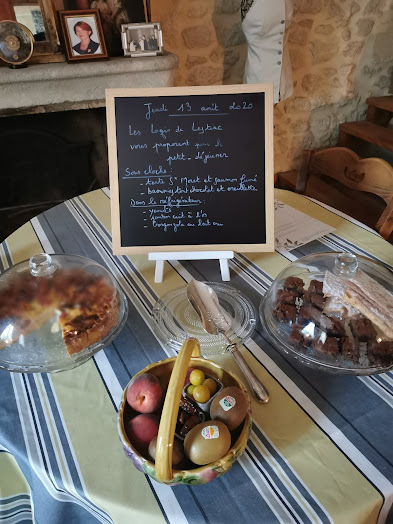 Jeudi 13 août 2020
Les Logis de Lestiac
vous proposent pour le
petit-déjeuner
Sous cloche:
- tarte St Moret et saumon fumé
- brownies tout chocolat et
Dans le réfrigérateur:
- yaourt
- jambon cuit à l'os
- au lait cru